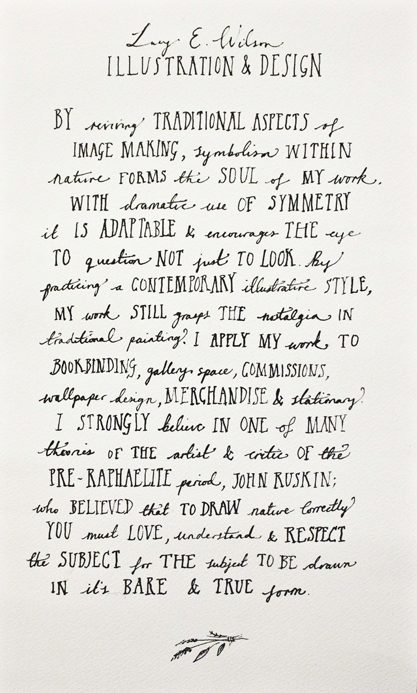 Lucy E. Wilson
ILLUSTRATION & DESIGN
BY reviving TRADITIONAL ASPECTS of
IMAGE MAKING, symbolism WITHIN
nature FORMS the SOUL of MY work.
WITH dramatic use OF SYMMETRY
it IS ADAPTABLE & encourages THE eye
TO question NOT just TO LOOK. By
practicing a CONTEMPORARY illustrative STYLE,
MY work STILL grasps THE nostalgia IN
traditional painting. I APPLY MY work TO
BOOKBINDING, gallery space, COMMISSIONS,
wallpaper design, MERCHANDISE & stationary.
I STRONGLY believe IN ONE of MANY
theories OF THE artist & critic OF the
PRE-RAPHAELITE period, JOHN RUSKIN;
who BELIEVED that TO DRAW nature correctly
YOU must LOVE, understand & RESPECT
the SUBJECT for THE subject TO BE drawn
IN it's BARE & TRUE form.